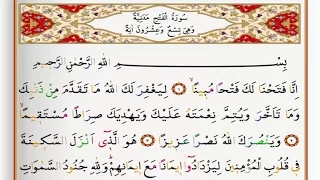 سُورَةُ الْفَتْحِ مَدَنِيَّةٌ
وَهِيَ تِسْعٌ وَعِشْرُونَ اٰيَةً
بِسْمِ اللّٰهِ الرَّحْمٰنِ الرَّحِيمِ
اِنَّا فَتَحْنَا لَكَ فَتْحًا مُبِينًا ۝ لِيَغْفِرَ لَكَ اللّٰهُ مَا تَقَدَّمَ مِنْ ذَنْبِكَ
وَمَا تَاَخَّرَ وَيُتِمَّ نِعْمَتَهُ عَلَيْكَ وَيَهْدِيَكَ صِرَاطًا مُسْتَقِيمًا ۝
وَيَنْصُرَكَ اللّٰهُ نَصْرًا عَزِيزًا ۝ هُوَ الَّذِي اَنْزَلَ السَّكِينَةَ
فِي قُلُوبِ الْمُؤْمِنِينَ لِيَزْدَادُوا اِيمَانًا مَعَ اِيمَانِهِمْ وَلِلّٰهِ جُنُودُ السَّمٰوَاتِ